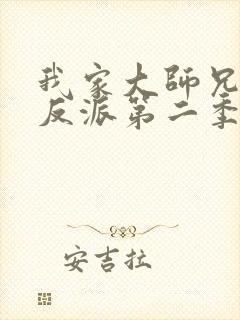 我家大師兄
反派第二季
安吉拉